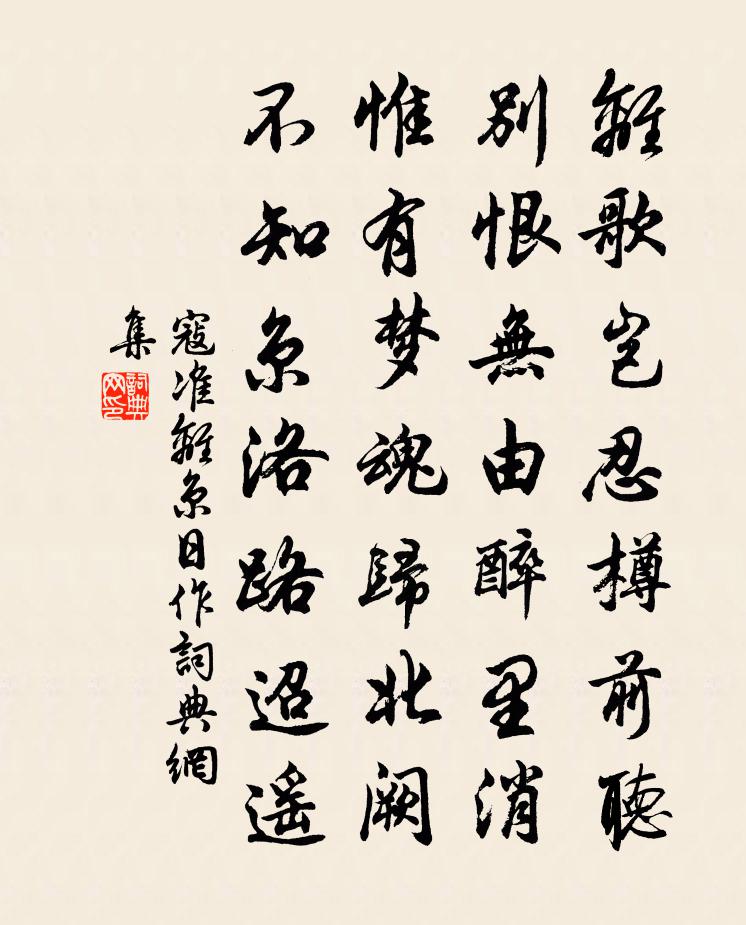 離歌豈忍樽前聽
別恨無由醉里消
惟有梦魂歸北阙
不知京洛路迢遥
寇准離京日作詞典網
集
詞典
网印